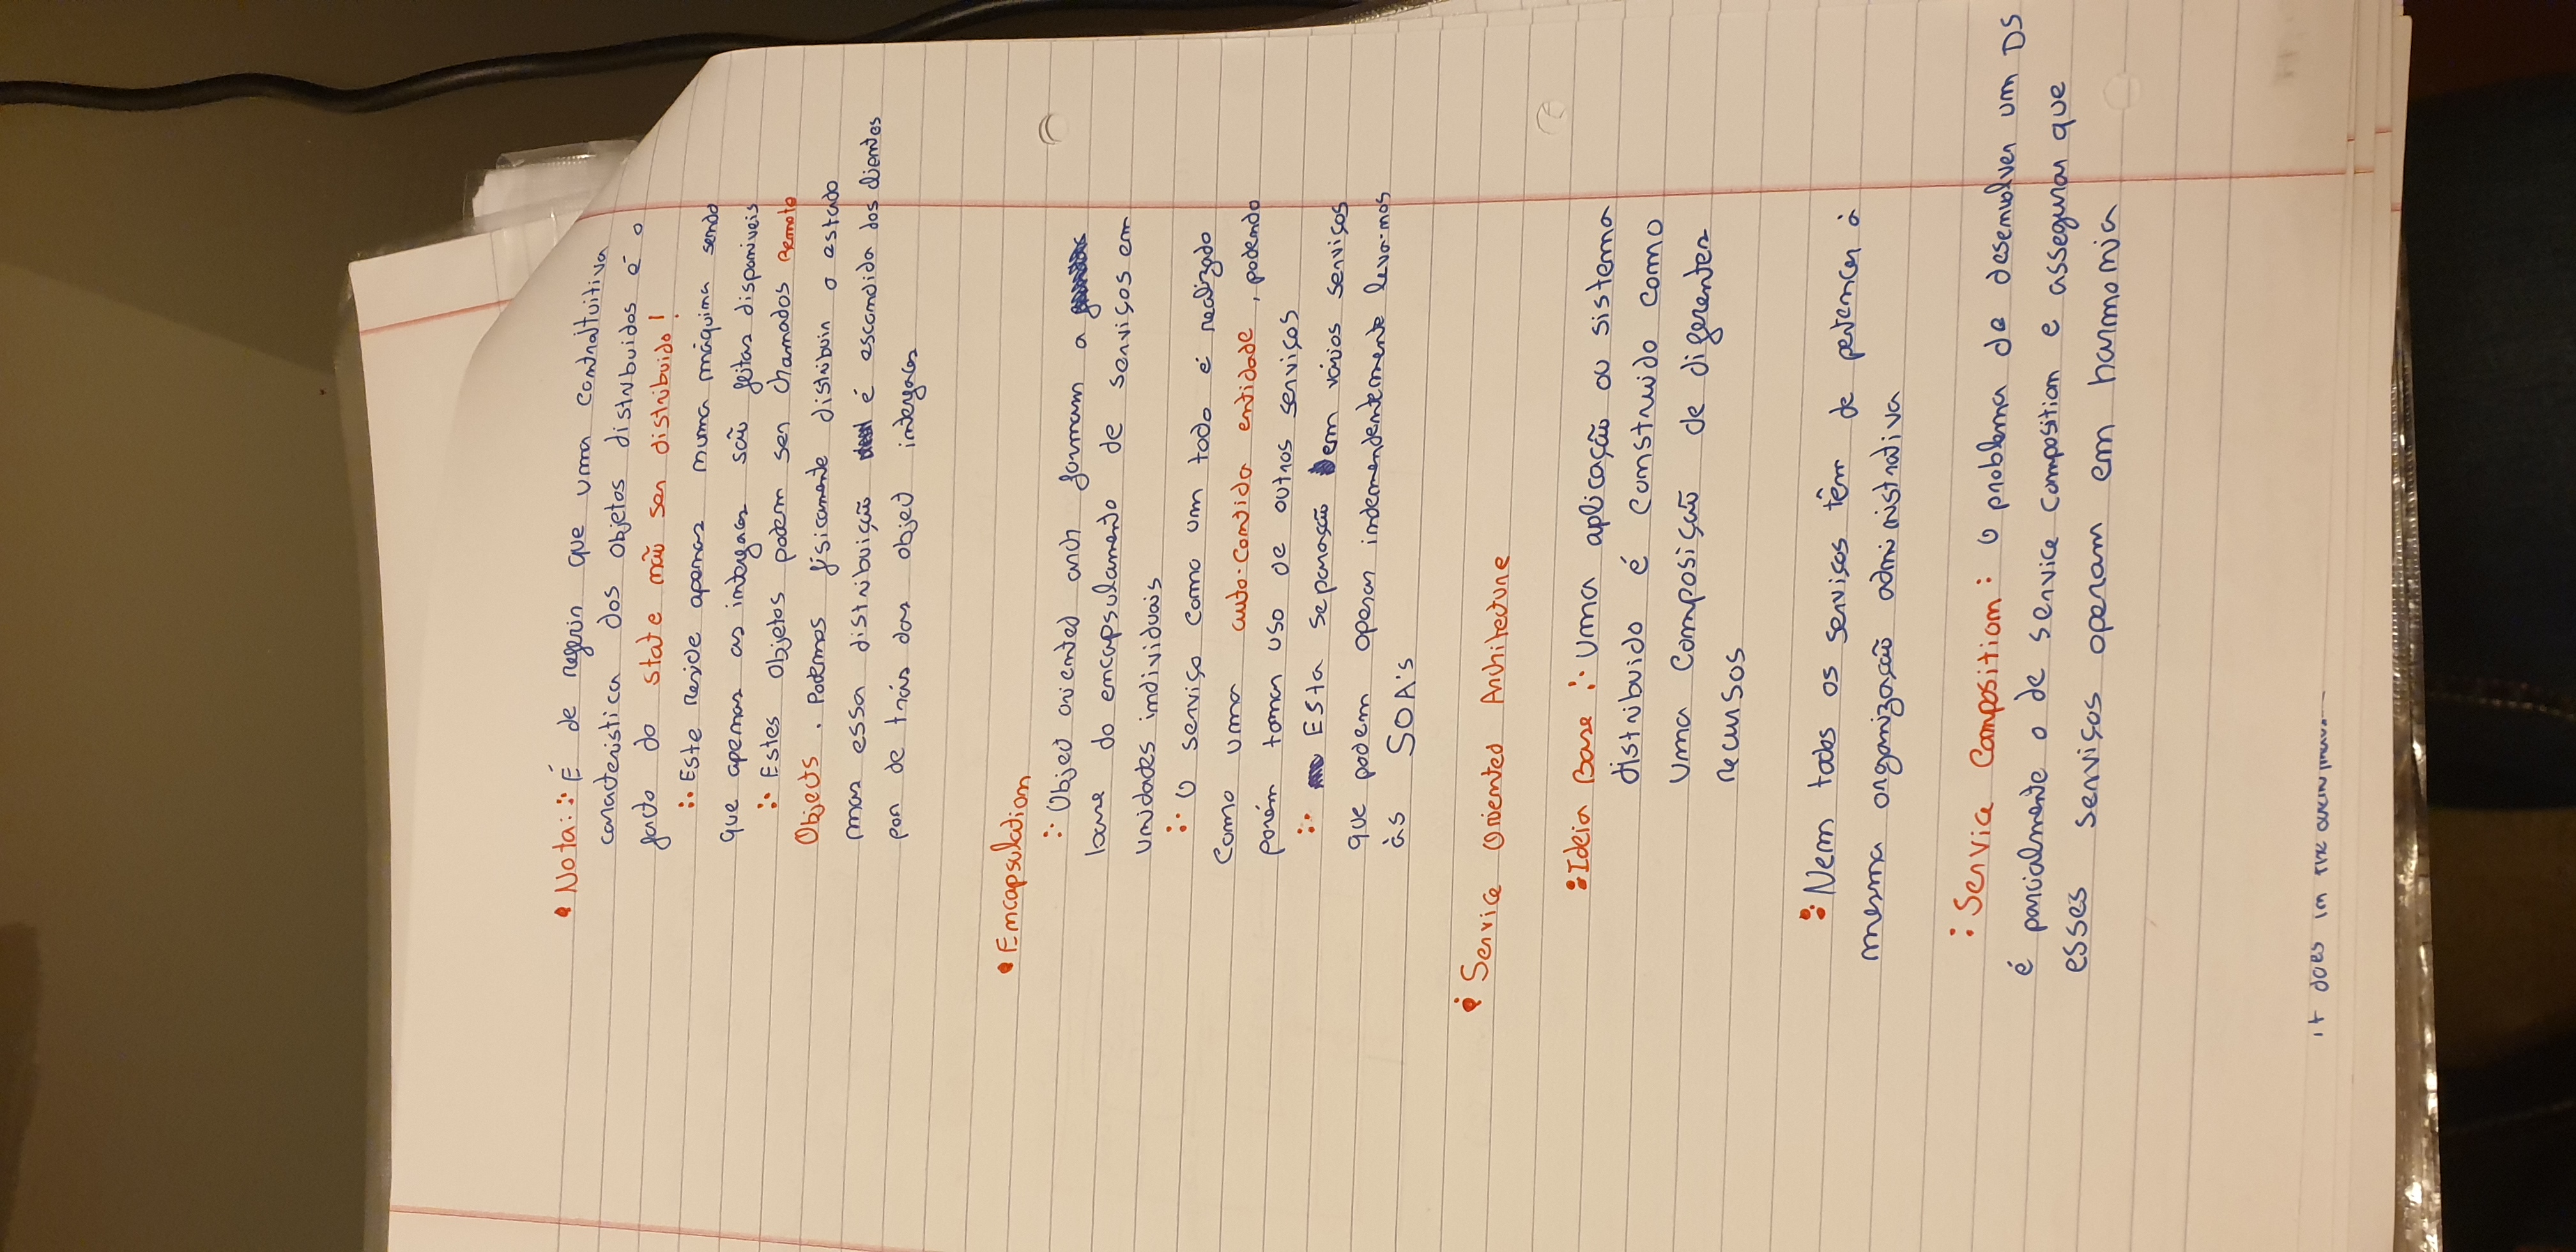 • Nota: ∴ É de referir que uma contraituitiva
caracteristica dos objetos distribuidos é o
facto do state não ser distribuido!
∴ Este reside apenas numa máquina sendo
que apenas as interfaces são feitas disponiveis
∴ Estes objetos podem ser chamados Remote
Objects. Podemos fisicamente distribuir o estado
mas essa distribuição é escondida dos clientes
por de trás das object interfaces
• Encapsulation
∴ Object oriented arch formam a
base do encapsulamento de serviços em
unidades individuais
∴ O serviço como um todo é realizado
como uma auto-contida entidade, podendo
porém tomar uso de outros serviços
∴ Esta separação em vários serviços
que podem operar indemendentemente leva-nos
às SOA's
• Service Oriented Architecture
: Ideia Base ∴ Uma aplicação ou sistema
distribuido é construido como
uma composição de diferentes
recursos
: Nem todos os serviços têm de pertencer à
mesma organização administrativa
: Service Composition: O problema de desenvolver um DS
é parcialmente o de service composition e assegurar que
esses serviços operam em harmonia
it does in the